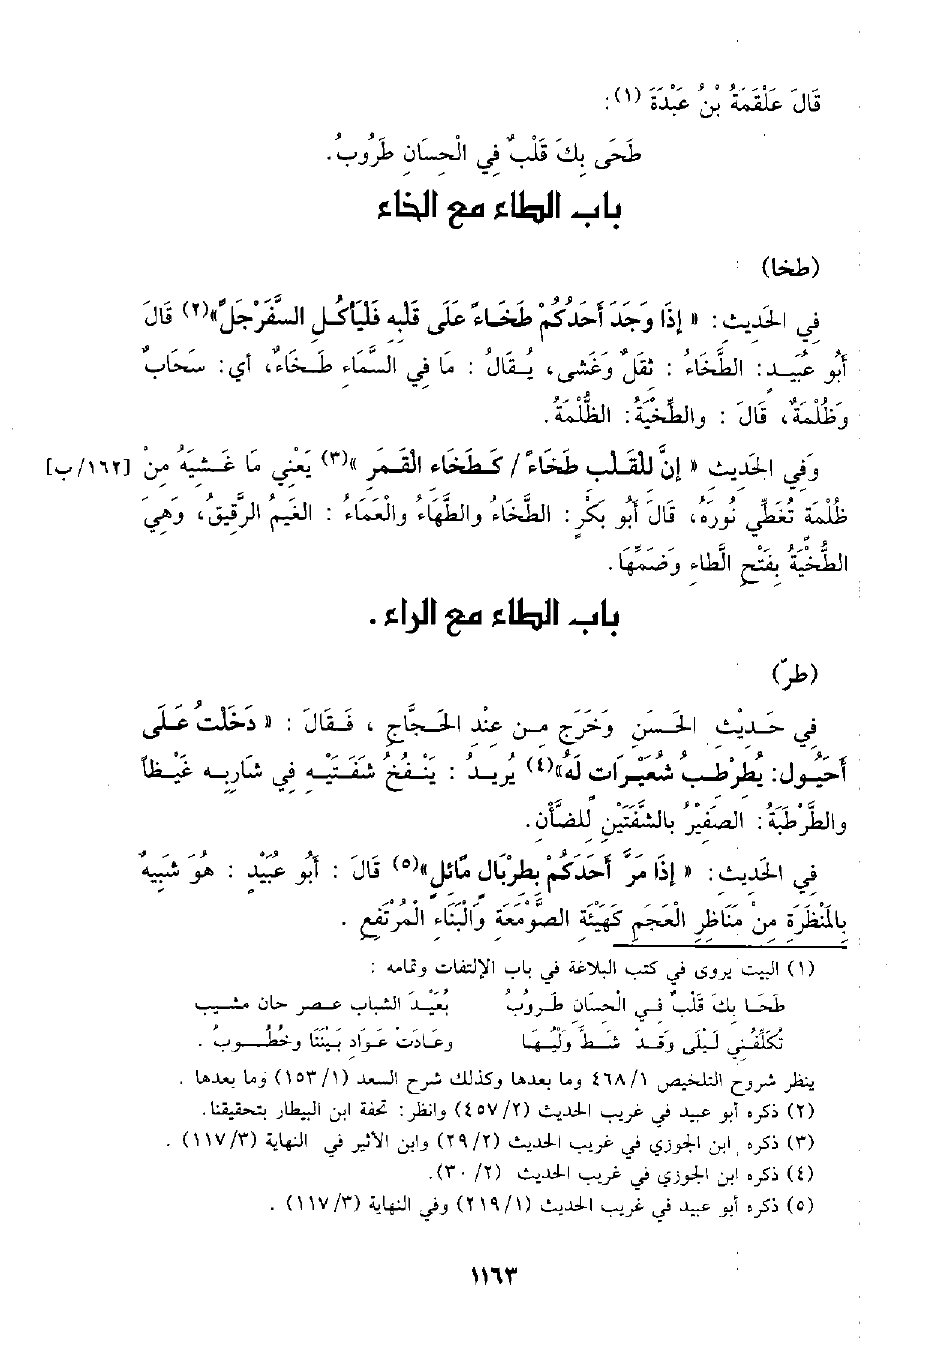 قَالَ عَلْقَمَةُ بْنُ عَبْدَةَ (١):
طَحَى بِكَ قَلْبٌ فِي الْحِسَانِ طَرُوبُ.
باب الطاء مع الخاء
(طخا)
فِي الحَدِيثِ: « إِذَا وَجَدَ أَحَدُكُمْ طَخَاءً عَلَى قَلْبِهِ فَلْيَأْكُلِ السَّفَرْجَلَ»(٢) قَالَ
أَبُو عُبَيْدٍ: الطَّخَاءُ : ثِقَلٌ وَغَشَى، يُقَالُ : مَا فِي السَّمَاءِ طَخَاءٌ، أي: سَحَابٌ
وَظُلْمَةٌ، قَالَ : والطِّخْيَةُ: الظُّلْمَةُ.
وَفِي الحَدِيثِ « إِنَّ لِلْقَلْبِ طَخَاءً / كَطَخَاءِ الْقَمَرِ »(٣) يَعْنِي مَا غَشِيَهُ مِنْ [١٦٢/ب]
ظُلْمَةٍ تُغَطِّي نُورَهُ، قَالَ أَبُو بَكْرٍ: الطَّخَاءُ والطَّهَاءُ والْعَمَاءُ : الغَيمُ الرَّقِيقُ، وَهِيَ
الطُّخْيَةُ بِفَتْحِ الطَّاءِ وَضَمِّهَا.
باب الطاء مع الراء .
(طرّ)
فِي حَدِيْثِ الحَسَنِ وَخَرَجَ مِن عِنْدِ الحَجَّاجِ ، فَقَالَ : « دَخَلْتُ عَلَى
أُحَيْوِل: يُطَرْطِبُ شُعَيْرَاتٍ لَهُ»(٤) يُرِيدُ : يَنْفُخُ شَفَتَيْهِ فِي شَارِبِهِ غَيْظًا
والطَّرْطَبَةُ: الصَفِيْرُ بِالشَّفَتَيْنِ لِلضَّأْنِ.
فِي الحَدِيثِ: « إِذَا مَرَّ أَحَدُكُمْ بِطِرْبَالٍ مَائِلٍ»(٥) قَالَ : أَبُو عُبَيْدٍ : هُوَ شَبِيهٌ
بِالمَنْظَرَةِ مِنْ مَنَاظِرِ الْعَجَمِ كَهَيْئَةِ الصَّوْمَعَةِ وَالْبِنَاءِ الْمُرْتَفِعِ .
(١) البيت يروى في كتب البلاغة في باب الإلتفات وتمامه :
طَحَا بِكَ قَلْبٌ فِي الْحِسَانِ طَرُوبُ بُعَيْدَ الشباب عصر حان مشيب
تُكَلِّفُنِي لَيْلَى وَقَدْ شَطَّ وَلْيُهَا وَعَادَتْ عَوَادٍ بَيْنَنَا وخُطُوبُ .
ينظر شروح التلخيص ٤٦٨/١ وما بعدها وكذلك شرح السعد (١٥٣/١) وما بعدها .
(٢) ذكره أبو عبيد في غريب الحديث (٤٥٧/٢) وانظر: تحفة ابن البيطار بتحقيقنا.
(٣) ذكره ابن الجوزي في غريب الحديث (٢٩/٢) وابن الأثير في النهاية (١١٧/٣) .
(٤) ذكره ابن الجوزي في غريب الحديث (٣٠/٢).
(٥) ذكره أبو عبيد في غريب الحديث (٢١٩/١) وفي النهاية (١١٧/٣) .
١١٦٣